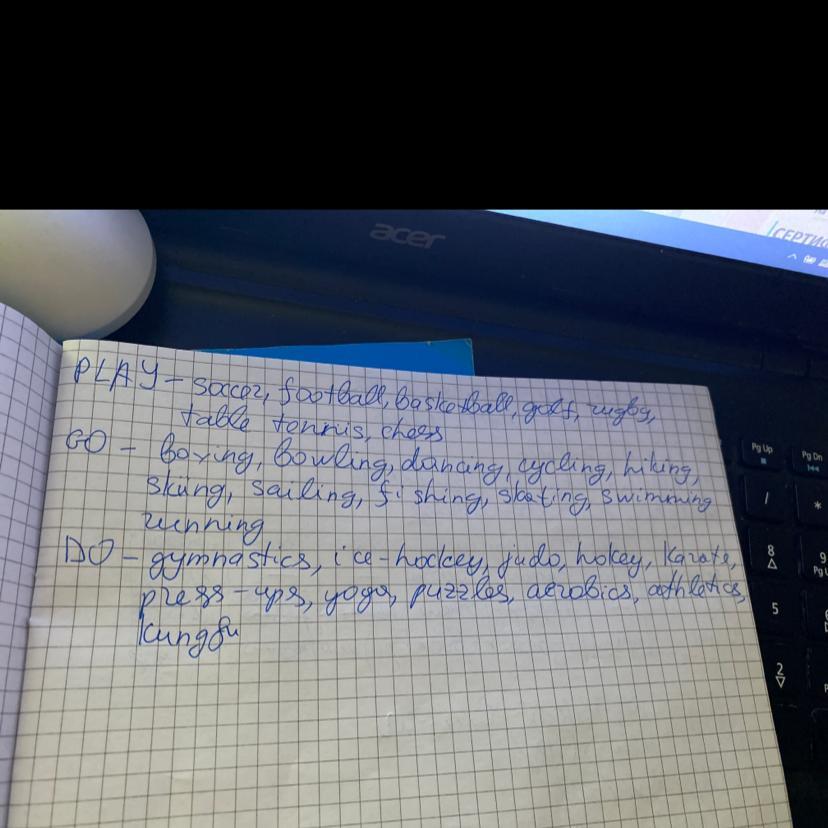 acer
СЕРТИ
PLAY – soccer, football, basketball, golf, rugby,
table tennis, chess
GO – boxing, bowling, dancing, cycling, hiking,
skiing, sailing, fishing, skating, swimming
running
DO – gymnastics, ice-hockey, judo, hokey, karate,
press-ups, yoga, puzzles, aerobics, athletics,
kungfu
Pg Up
Pg Dn
/
*
8
9
5
2